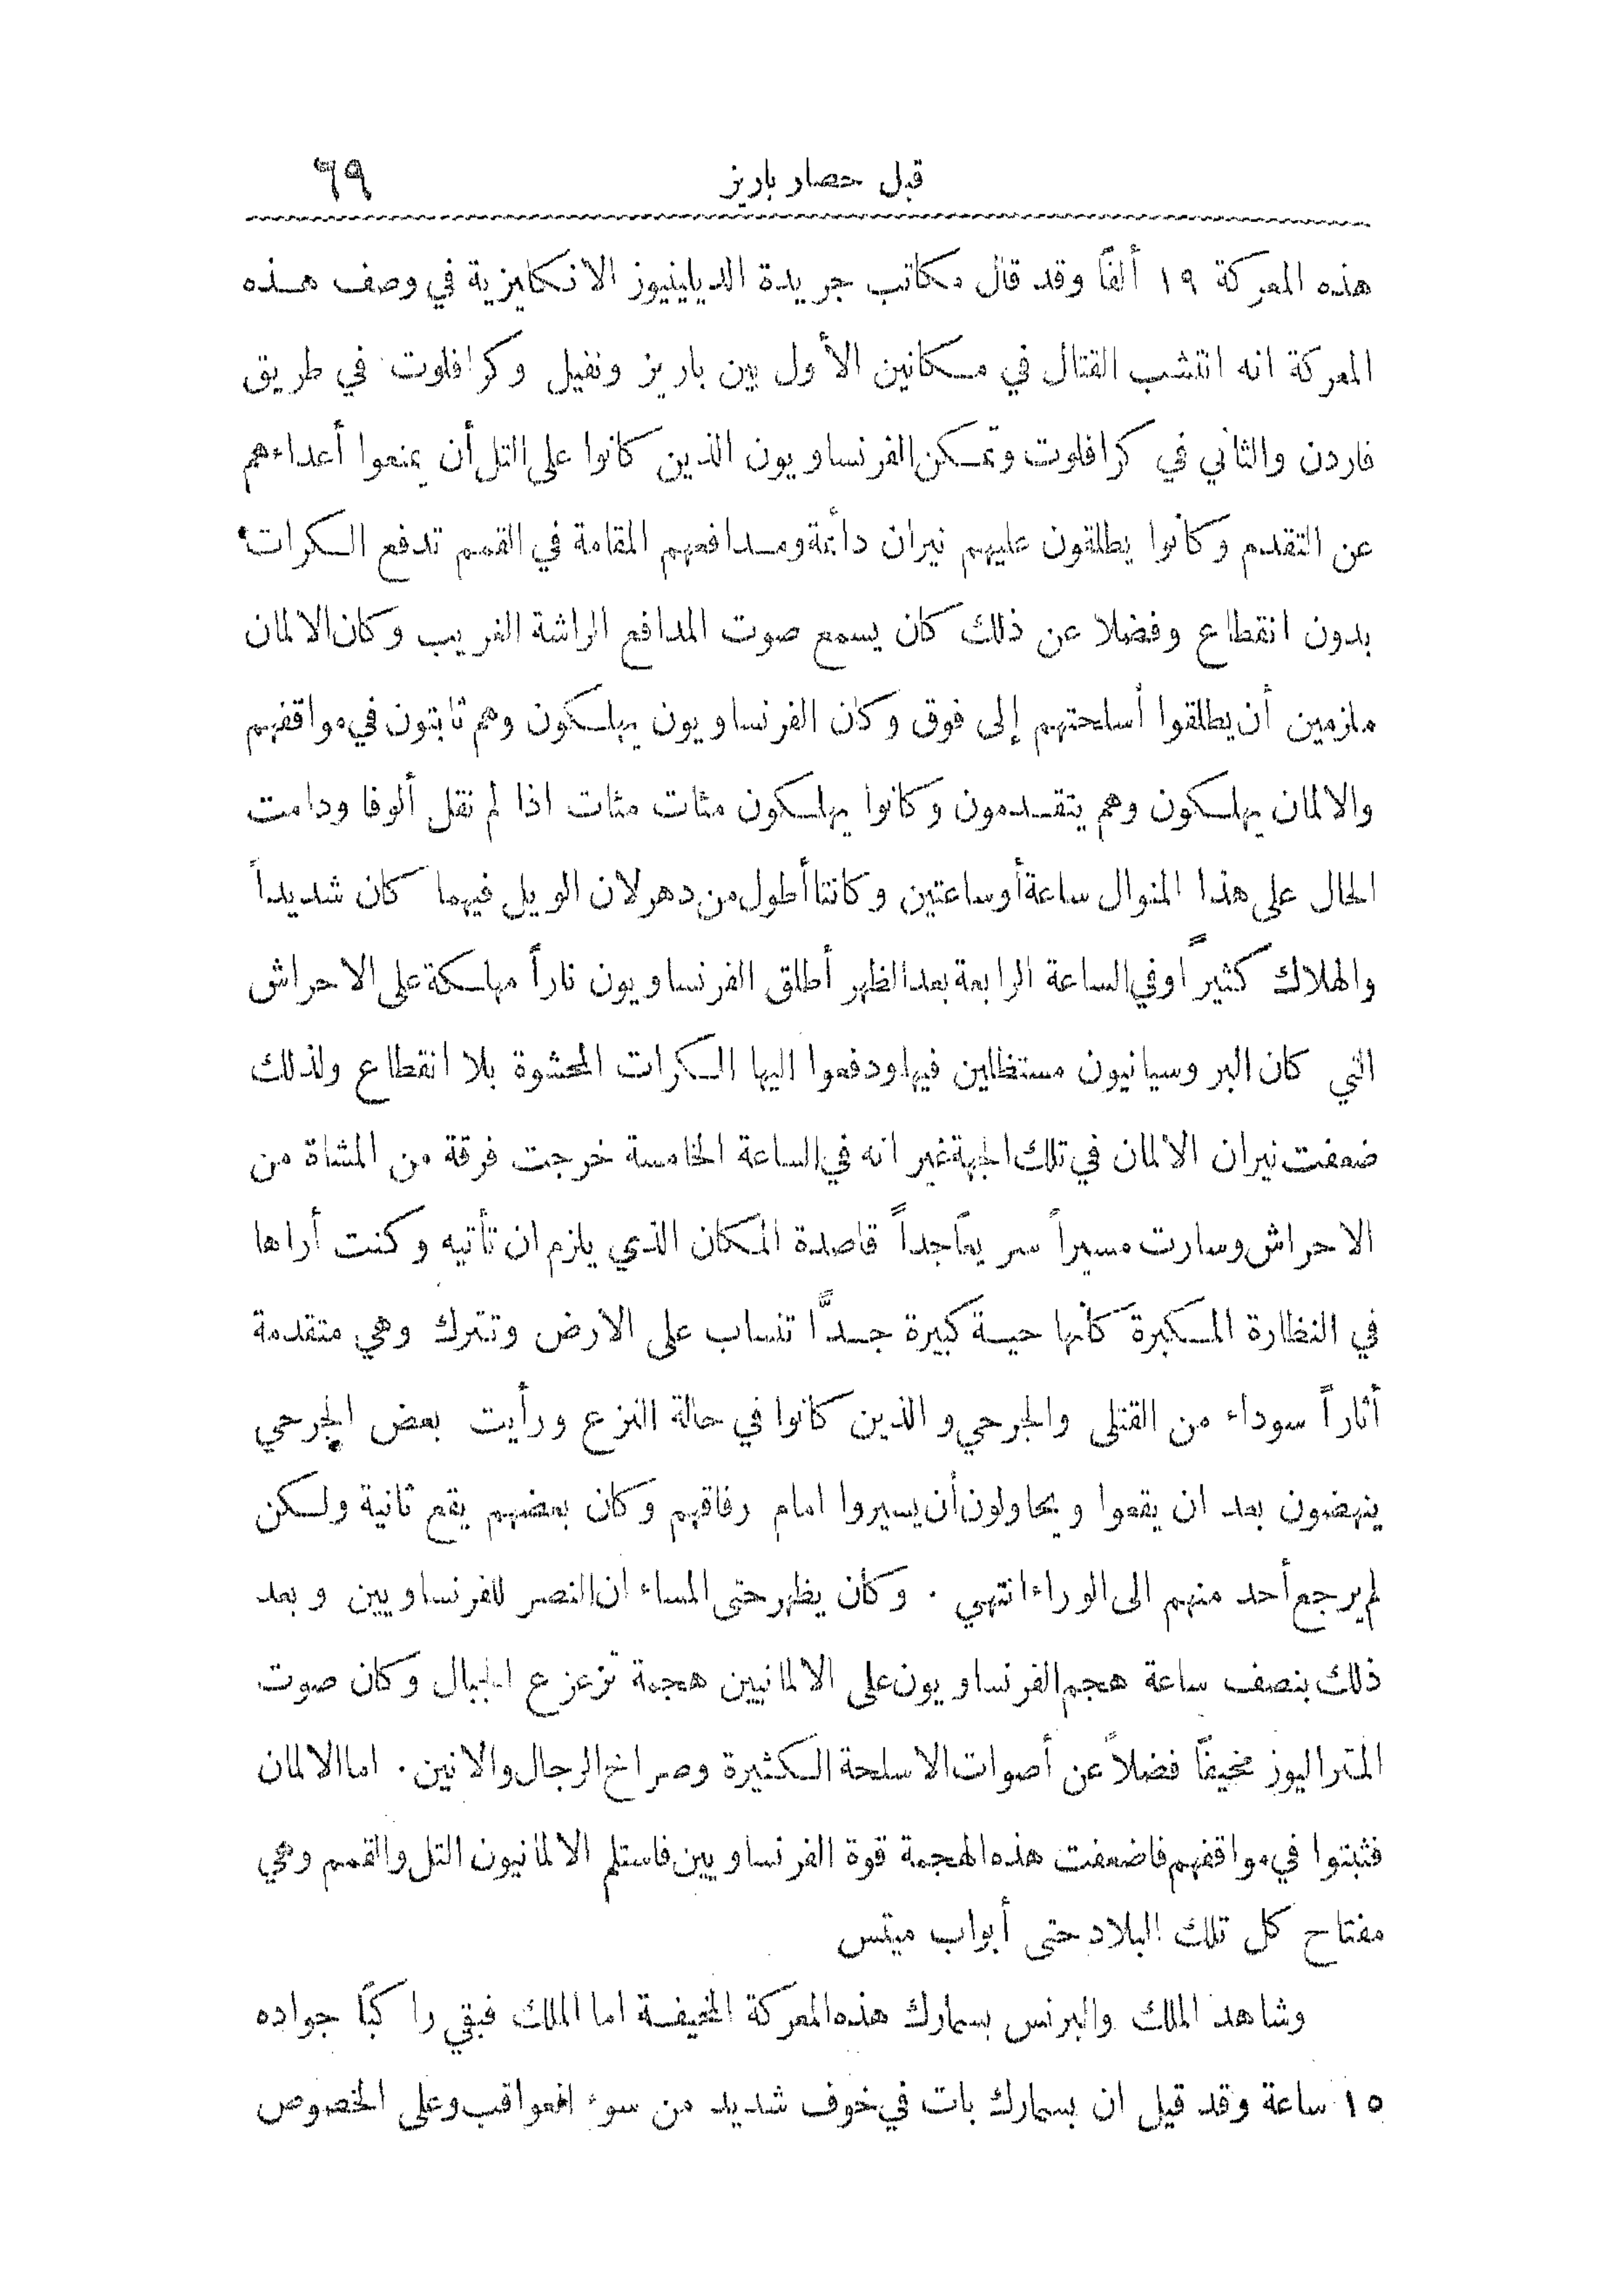 قبل حصار باريز ٦٩
هذه المعركة ١٩ ألفاً وقد قال مكاتب جريدة الديلينيوز الانكليزية في وصف هذه
المعركة انه انتشب القتال في مكانين الأول بين باريز ونفيل وكرافلوت في طريق
فاردن والثاني في كرافلوت وتمكن الفرنساويون الذين كانوا على التل أن يمنعوا أعداءهم
عن التقدم وكانوا يطلقون عليهم نيران دائمة ومدافعهم المقامة في القمم تدفع الكرات
بدون انقطاع وفضلا عن ذلك كان يسمع صوت المدافع الراشة الغريب وكان الالمان
ملزمين أن يطلقوا أسلحتهم إلى فوق وكان الفرنساويون يهلكون وهم ثابتون في مواقفهم
والالمان يهلكون وهم يتقدمون وكانوا يهلكون مئات مئات اذا لم نقل ألوفا ودامت
الحال على هذا المنوال ساعة أو ساعتين وكانتا أطول من دهر لان الويل فيهما كان شديداً
والهلاك كثيراً وفي الساعة الرابعة بعد الظهر أطلق الفرنساويون ناراً مهلكة على الاحراش
التي كان البروسيانيون مستظلين فيها ودفعوا اليها الكرات المحشوة بلا انقطاع ولذلك
ضعفت نيران الالمان في تلك الجهة غير انه في الساعة الخامسة خرجت فرقة من المشاة من
الاحراش وسارت مسيراً سريعاً جداً قاصدة المكان الذي يلزم ان تأتيه وكنت أراها
في النظارة المكبرة كأنها حية كبيرة جدًّا تنساب على الارض وتترك وهي متقدمة
أثاراً سوداء من القتلى والجرحي والذين كانوا في حالة النزع ورأيت بعض الجرحي
ينهضون بعد ان يقعوا ويحاولون أن يسيروا امام رفاقهم وكان بعضهم يقع ثانية ولكن
لم يرجع أحد منهم الى الوراء انتهي . وكان يظهر حتى المساء ان النصر للفرنساويين وبعد
ذلك بنصف ساعة هجم الفرنساويون على الالمانيين هجمة تزعزع الجبال وكان صوت
المتراليوز مخيفاً فضلاً عن أصوات الاسلحة الكثيرة وصراخ الرجال والانين . اما الالمان
فثبتوا في مواقفهم فاضعفت هذه الهجمة قوة الفرنساويين فاستلم الالمانيون التل والقمم وهي
مفتاح كل تلك البلاد حتى أبواب ميتس
وشاهد الملك والبرنس بسمارك هذه المعركة المخيفة اما الملك فبقي راكباً جواده
١٥ ساعة وقد قيل ان بسمارك بات في خوف شديد من سوء العواقب وعلى الخصوص